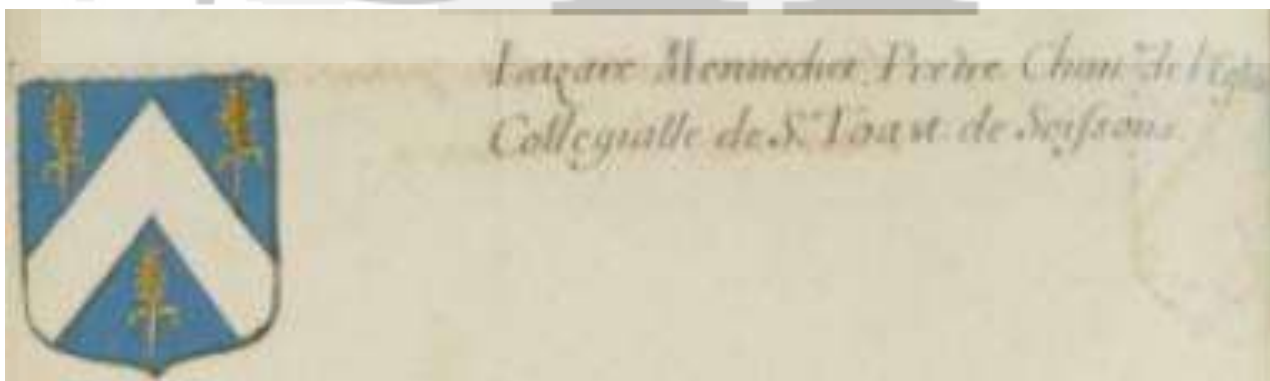 Lazare Mennechet Prêtre Chan.ne de l'Eglise
Collegialle de S.t Voast de Soissons